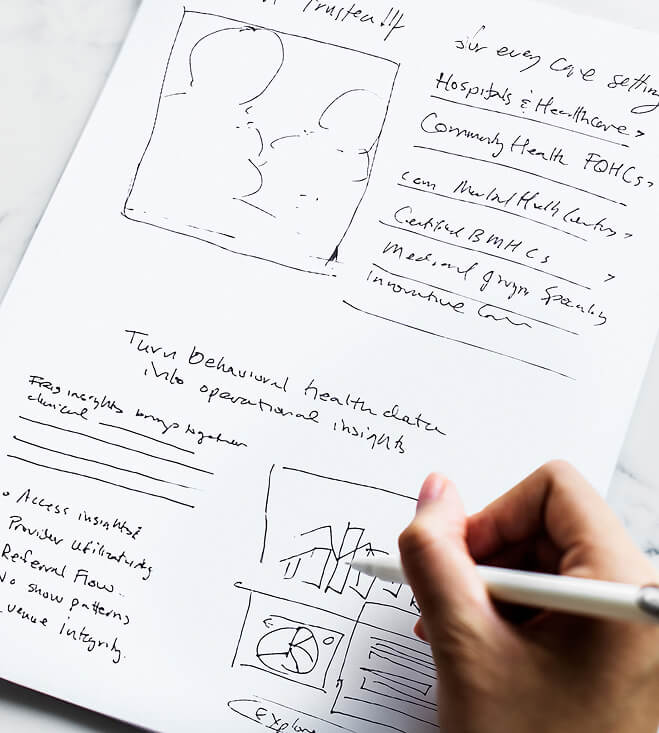 Trusted !!!
for every care setting
Hospitals & Healthcare >
Community Health FQHCs >
Com Mental Health Centers >
Certified BMHCs >
Medical group Specialty
Innovative Care
Turn behavioral health data
into operational insights
insights brings together
clinical
• Access insights
Provider utilization
Referral Flow
No show patterns
venue integrity.
Explore